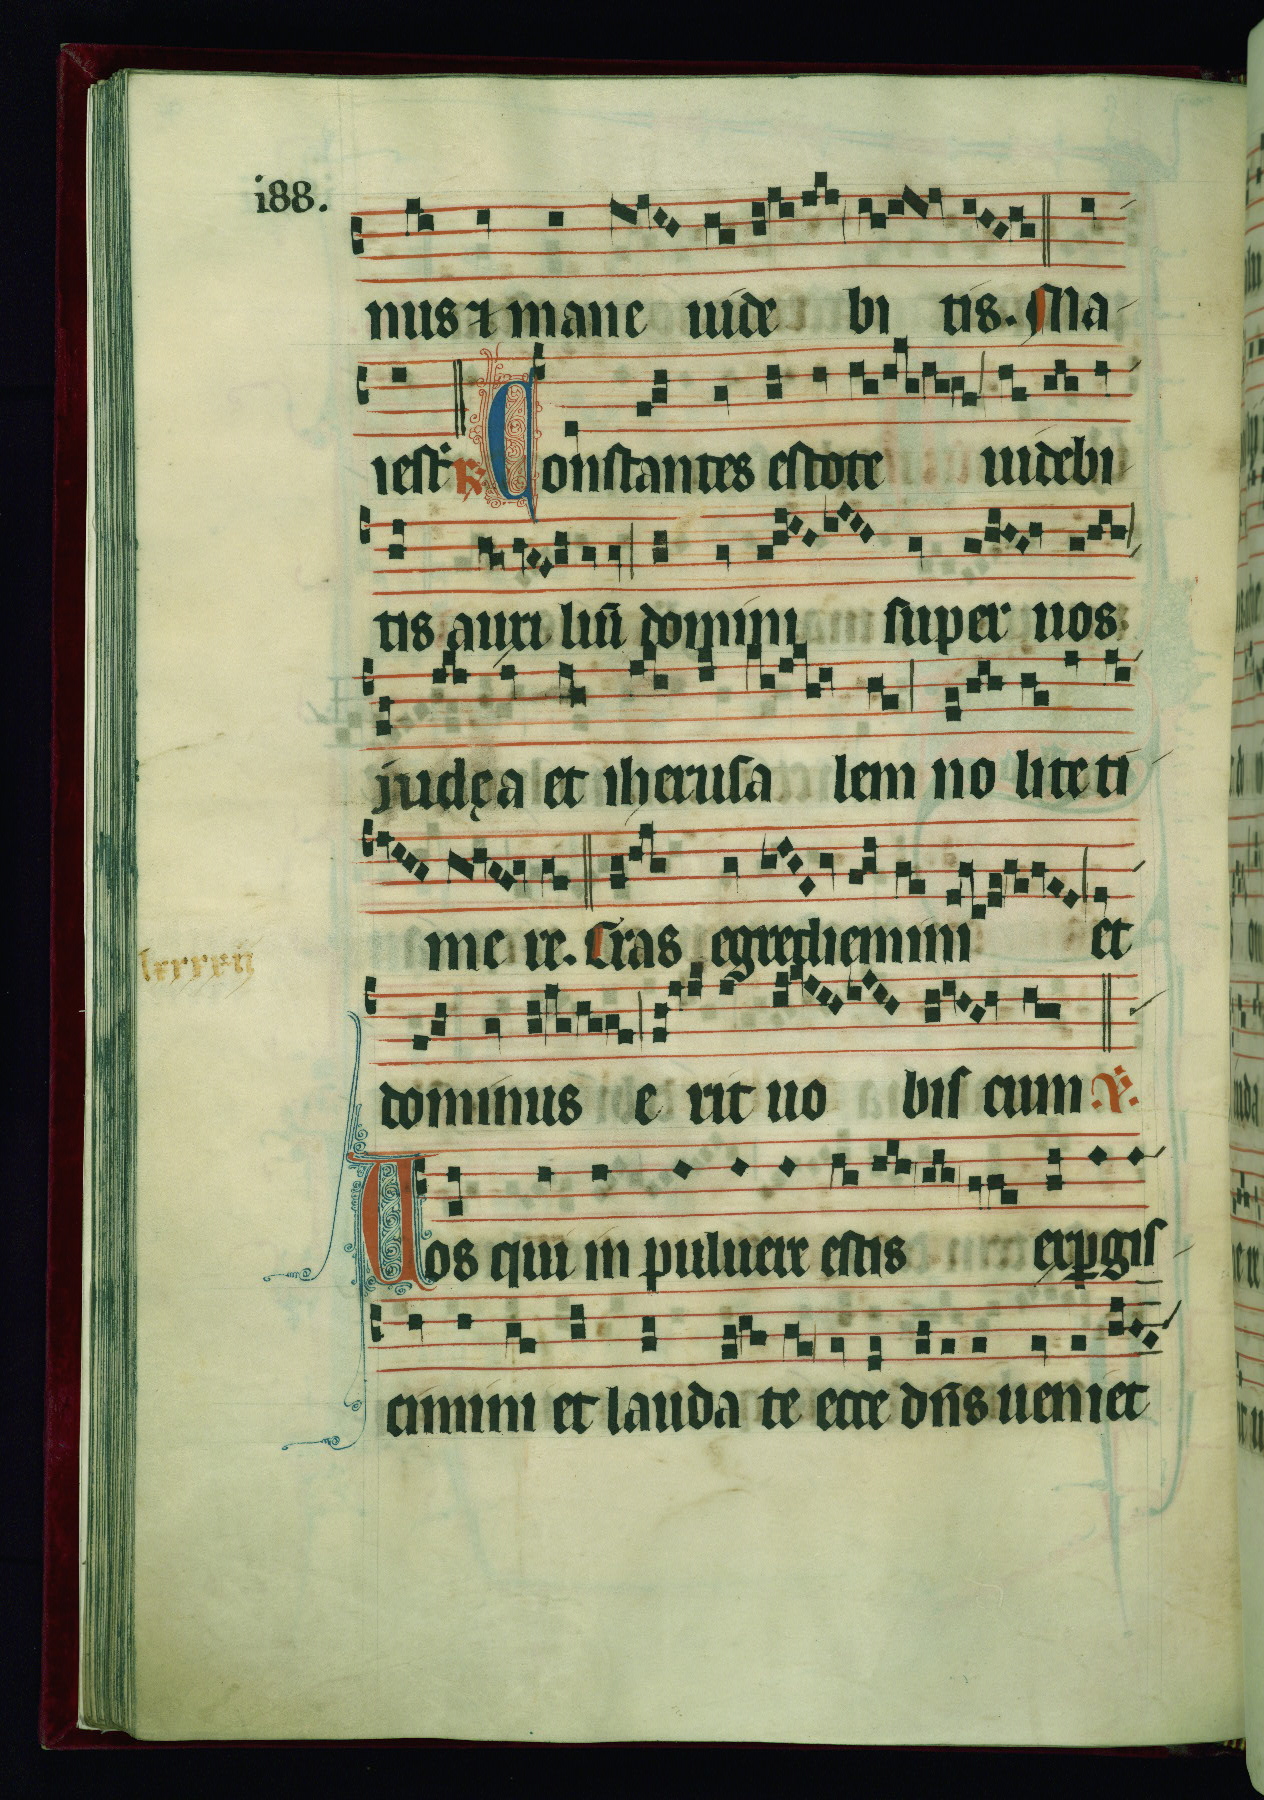 i88.
nus ⁊ mane uide bi tis. Ma
iest ℟ Constantes estote uidebi
tis auxi liū domini super uos
iudęa et iherusa lem no lite ti
me re. Cras egrediemini et
lxxxxvii
dominus e rit uo bis cum ℣.
Uos qui in puluere estis exꝑgis
cimini et lauda te ecce dn̄s ueniet